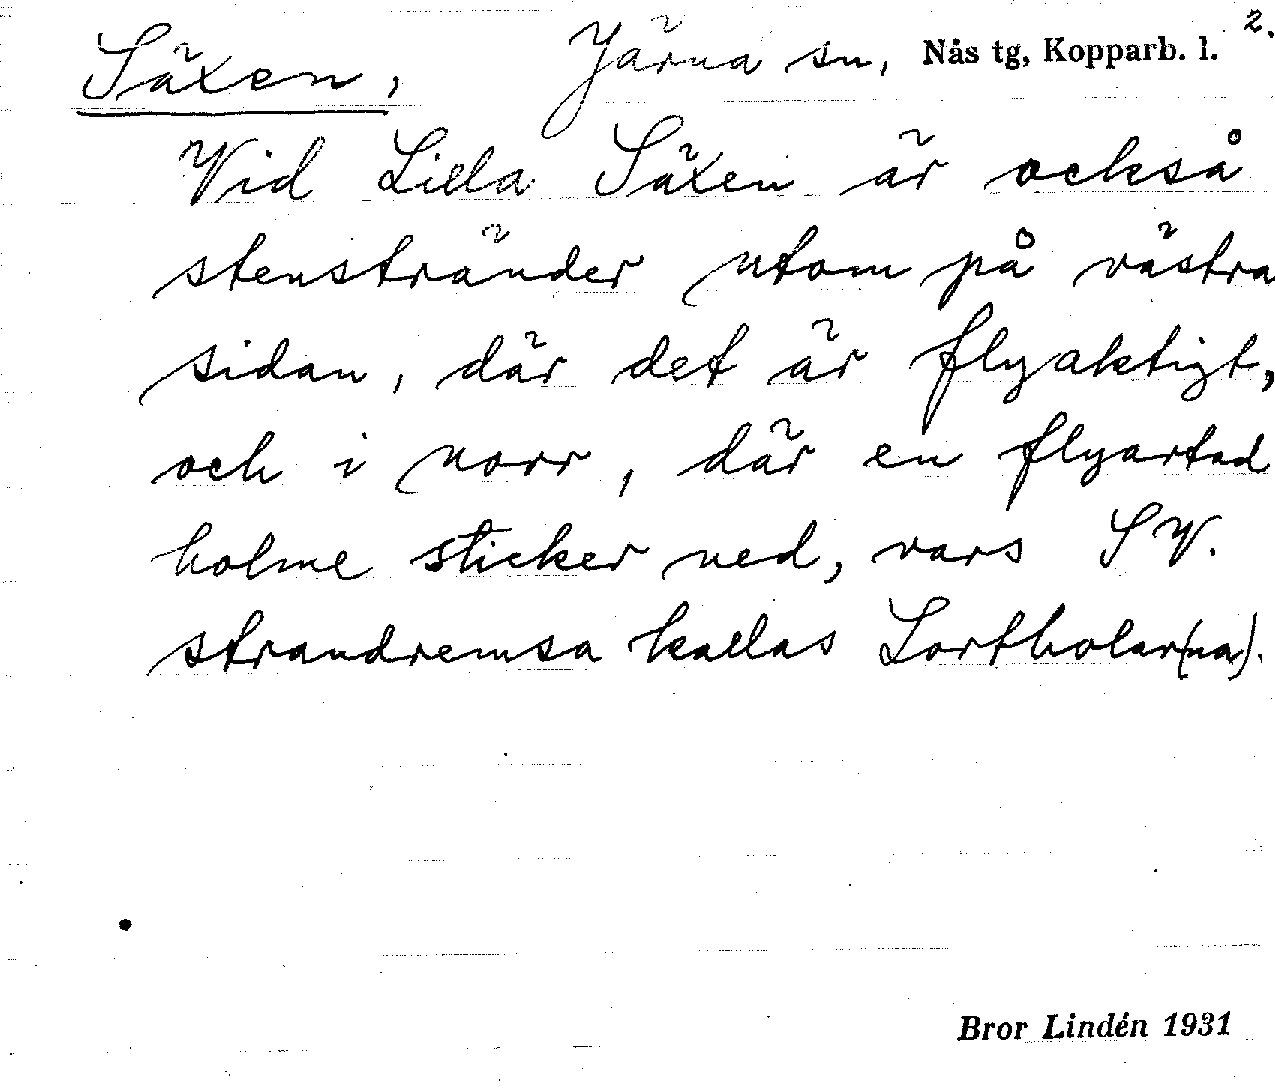 Säxen, Järna sn, Nås tg, Kopparb. l. 2.
Vid Lilla Säxen är också
stenstränder utom på västra
sidan, där det är flyaktigt,
och i norr, där en flyartad
holme sticker ned, vars SV.
strandremsa kallas Lortholar(na).
Bror Lindén 1931